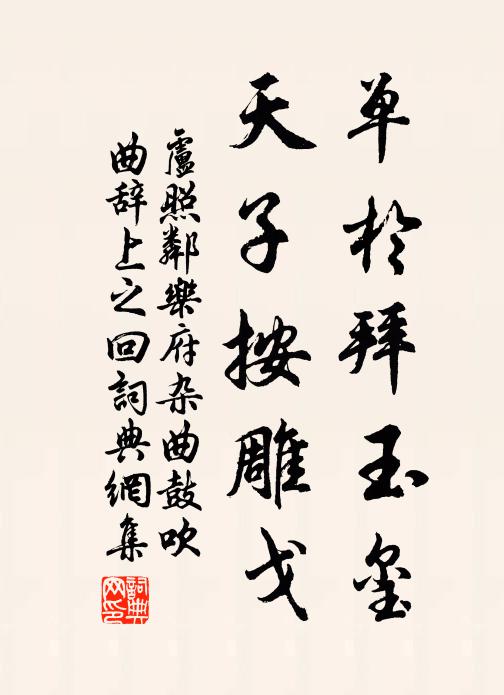 单於拜玉玺
天子按雕戈
盧照鄰樂府杂曲鼓吹
曲辞上之回詞典網集
詞典网印